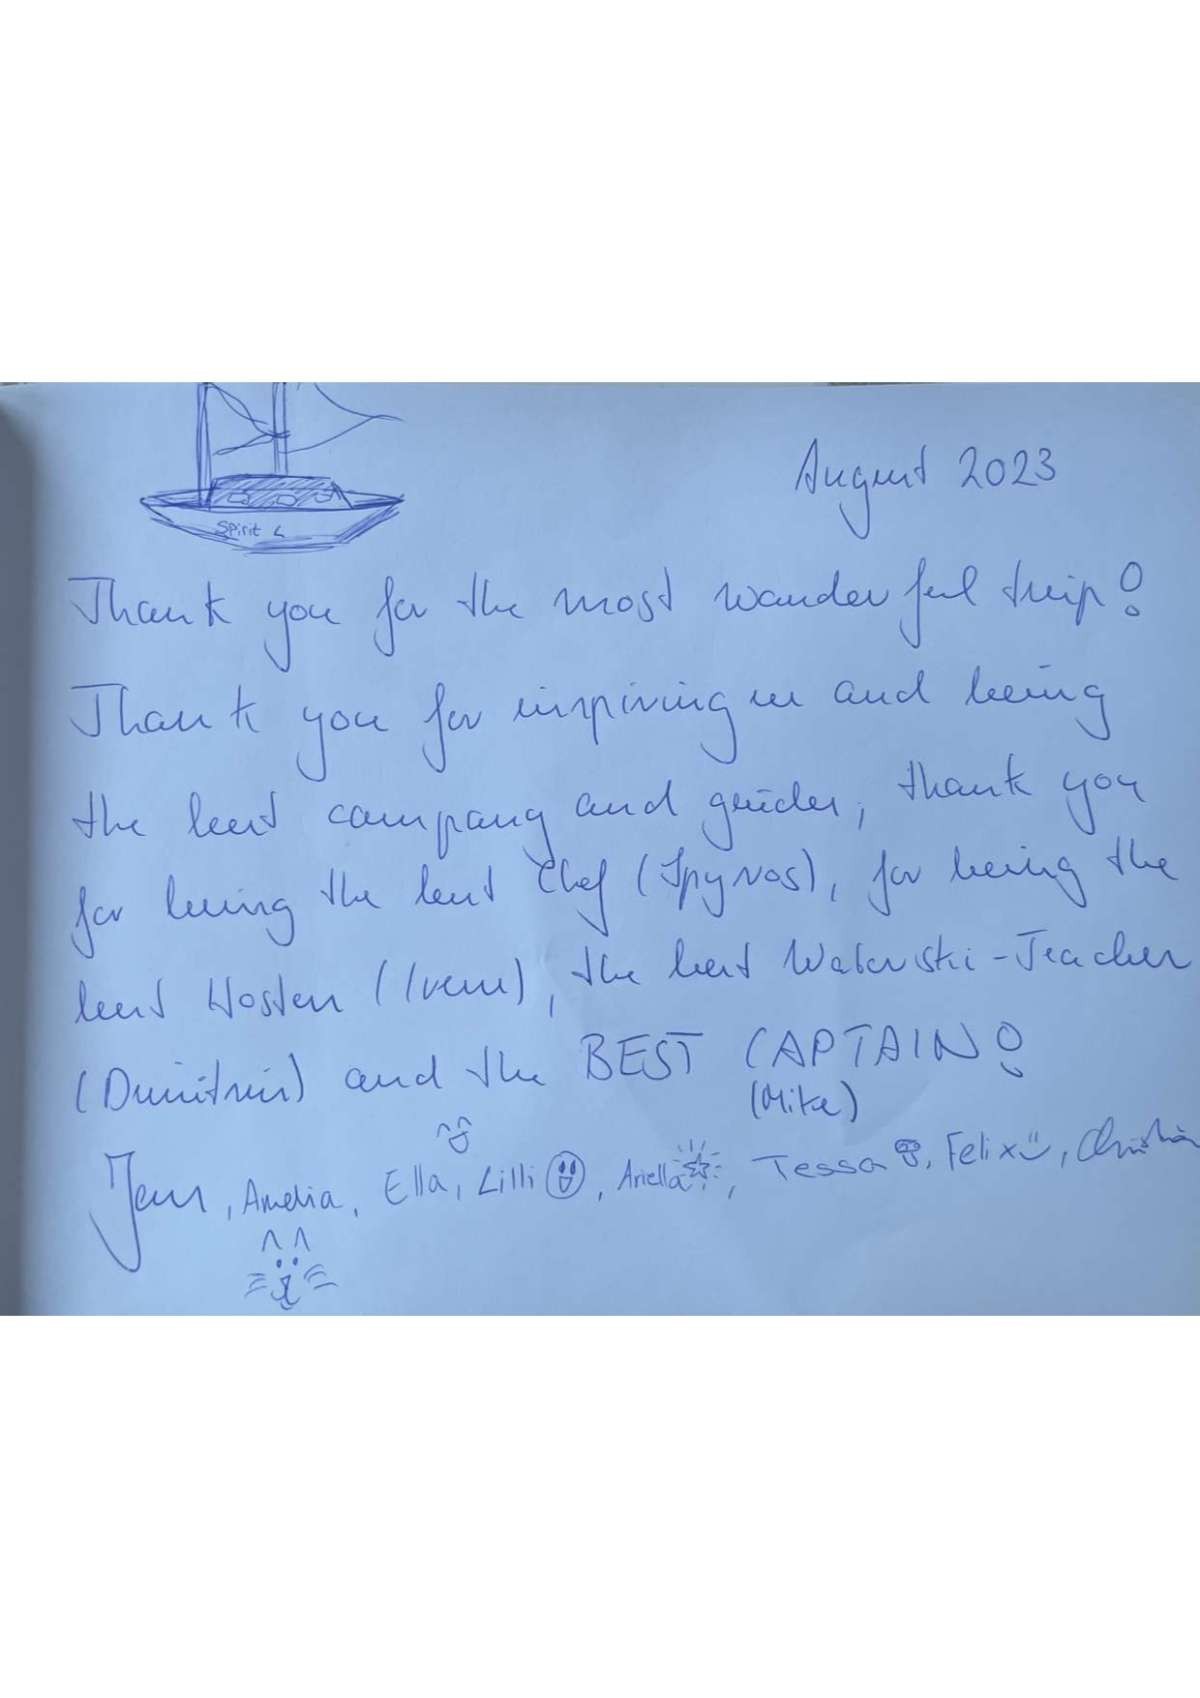 Spirit 4
August 2023
Thank you for the most wonderful trip!
Thank you for inspiring us and being
the best company and guides, thank you
for being the best Chef (Spyros), for being the
best Hostess (Irene), the best Waterski-Teacher
(Dimitris) and the BEST CAPTAIN!
(Mike)
Jens, Amelia, Ella, Lilli, Ariella, Tessa, Felix, Christian